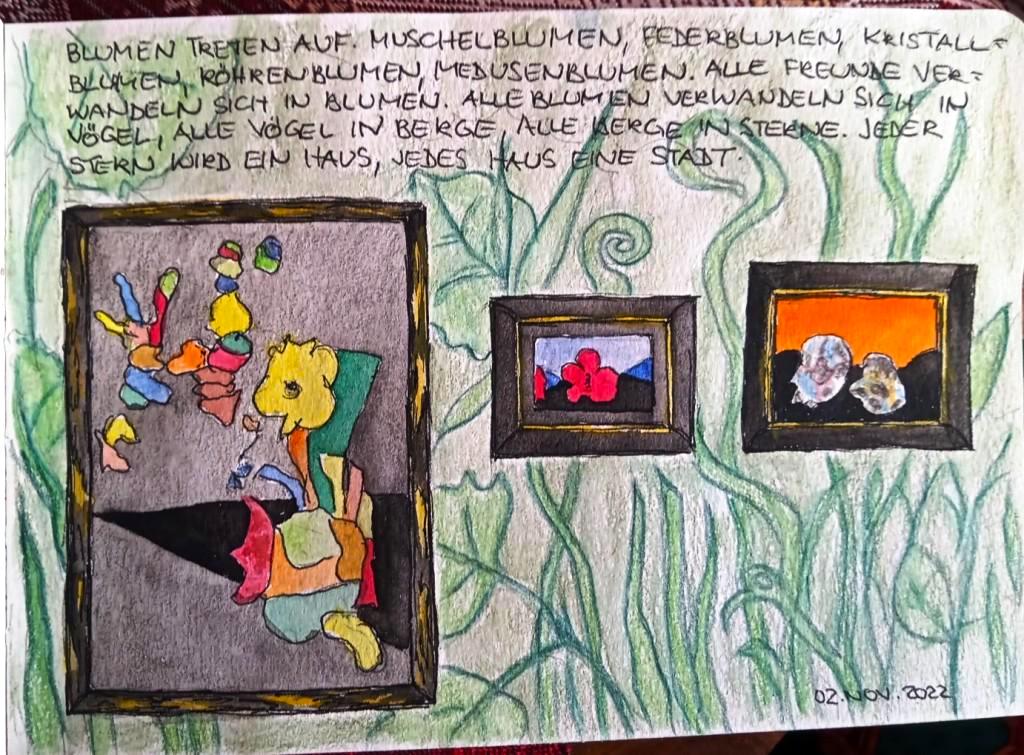 BLUMEN TRETEN AUF. MUSCHELBLUMEN, FEDERBLUMEN, KRISTALL=
BLUMEN, RÖHRENBLUMEN, MEDUSENBLUMEN. ALLE FREUNDE VER=
WANDELN SICH IN BLUMEN. ALLE BLUMEN VERWANDELN SICH IN
VÖGEL, ALLE VÖGEL IN BERGE, ALLE BERGE IN STERNE. JEDER
STERN WIRD EIN HAUS, JEDES HAUS EINE STADT.
02.NOV.2022